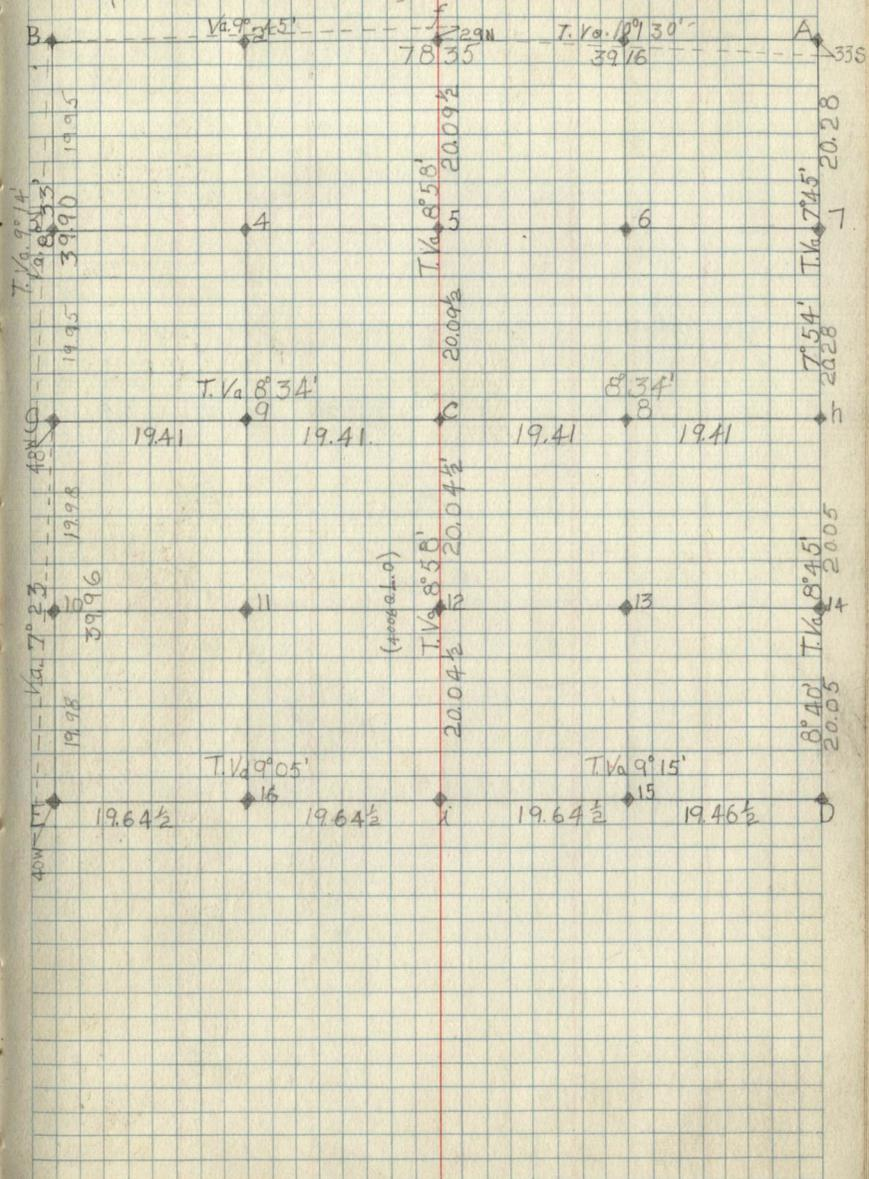 B Va. 9° 45' 29N T. Va. 30' A
2 78 35 39 16 33S
19.95 20.09½ 20.28
T. Va. 9° 14' 39.90 4 T.Va 8°58' 5 6 T.Va 7°45' 7
19.95 20.09½ 7°54' 20.28
T. Va 8°34' 8°34'
9 C 8 h
48W 19.41 19.41 19.41 19.41
19.98 20.04½ 20.05
Va. 7° 23 10 39.96 11 T.Va 8°58' 12 13 T.Va 8°45' 14
19.98 20.04½ 8°40' 20.05
T.Va 9°05' T.Va 9°15'
E 16 i 15 D
40W 19.64½ 19.64½ 19.64½ 19.46½